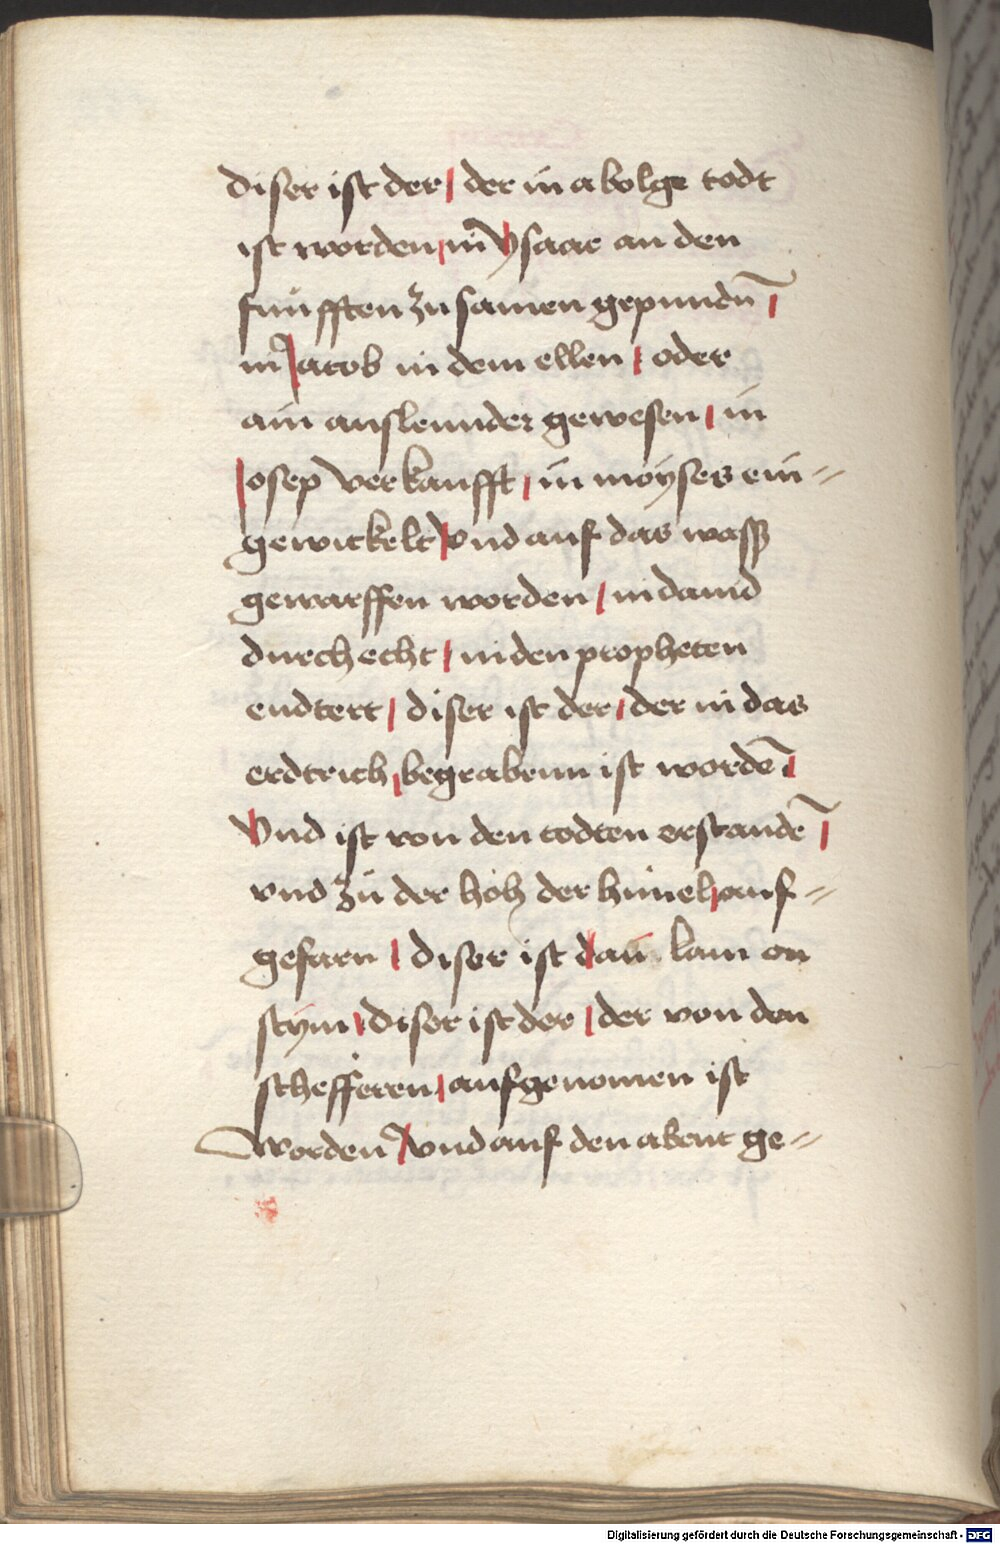 diser ist der / der in abolge todt
ist worden / in ysaac an den
fuͤessten zusamen gepundn̄ /
in Jacob in dem ellen / oder
ain auslennder gewesen / in
Josep verkaufft / in moyses ein=
gewickelt Vnd auf das wass
geworffen worden / in dauid
durchecht / in den propheten
endtert / diser ist der / der in das
erdtrich / begrabenn ist wordē /
Vnd ist von den todten erstandē /
vnd zu der hoͤh der himel / auf=
gefarn / diser ist dain lam on
stym / diser ist der / der von den
schefferen / aufgenomen ist
worden / vnd auf den abent ge=
Digitalisierung gefördert durch die Deutsche Forschungsgemeinschaft - DFG